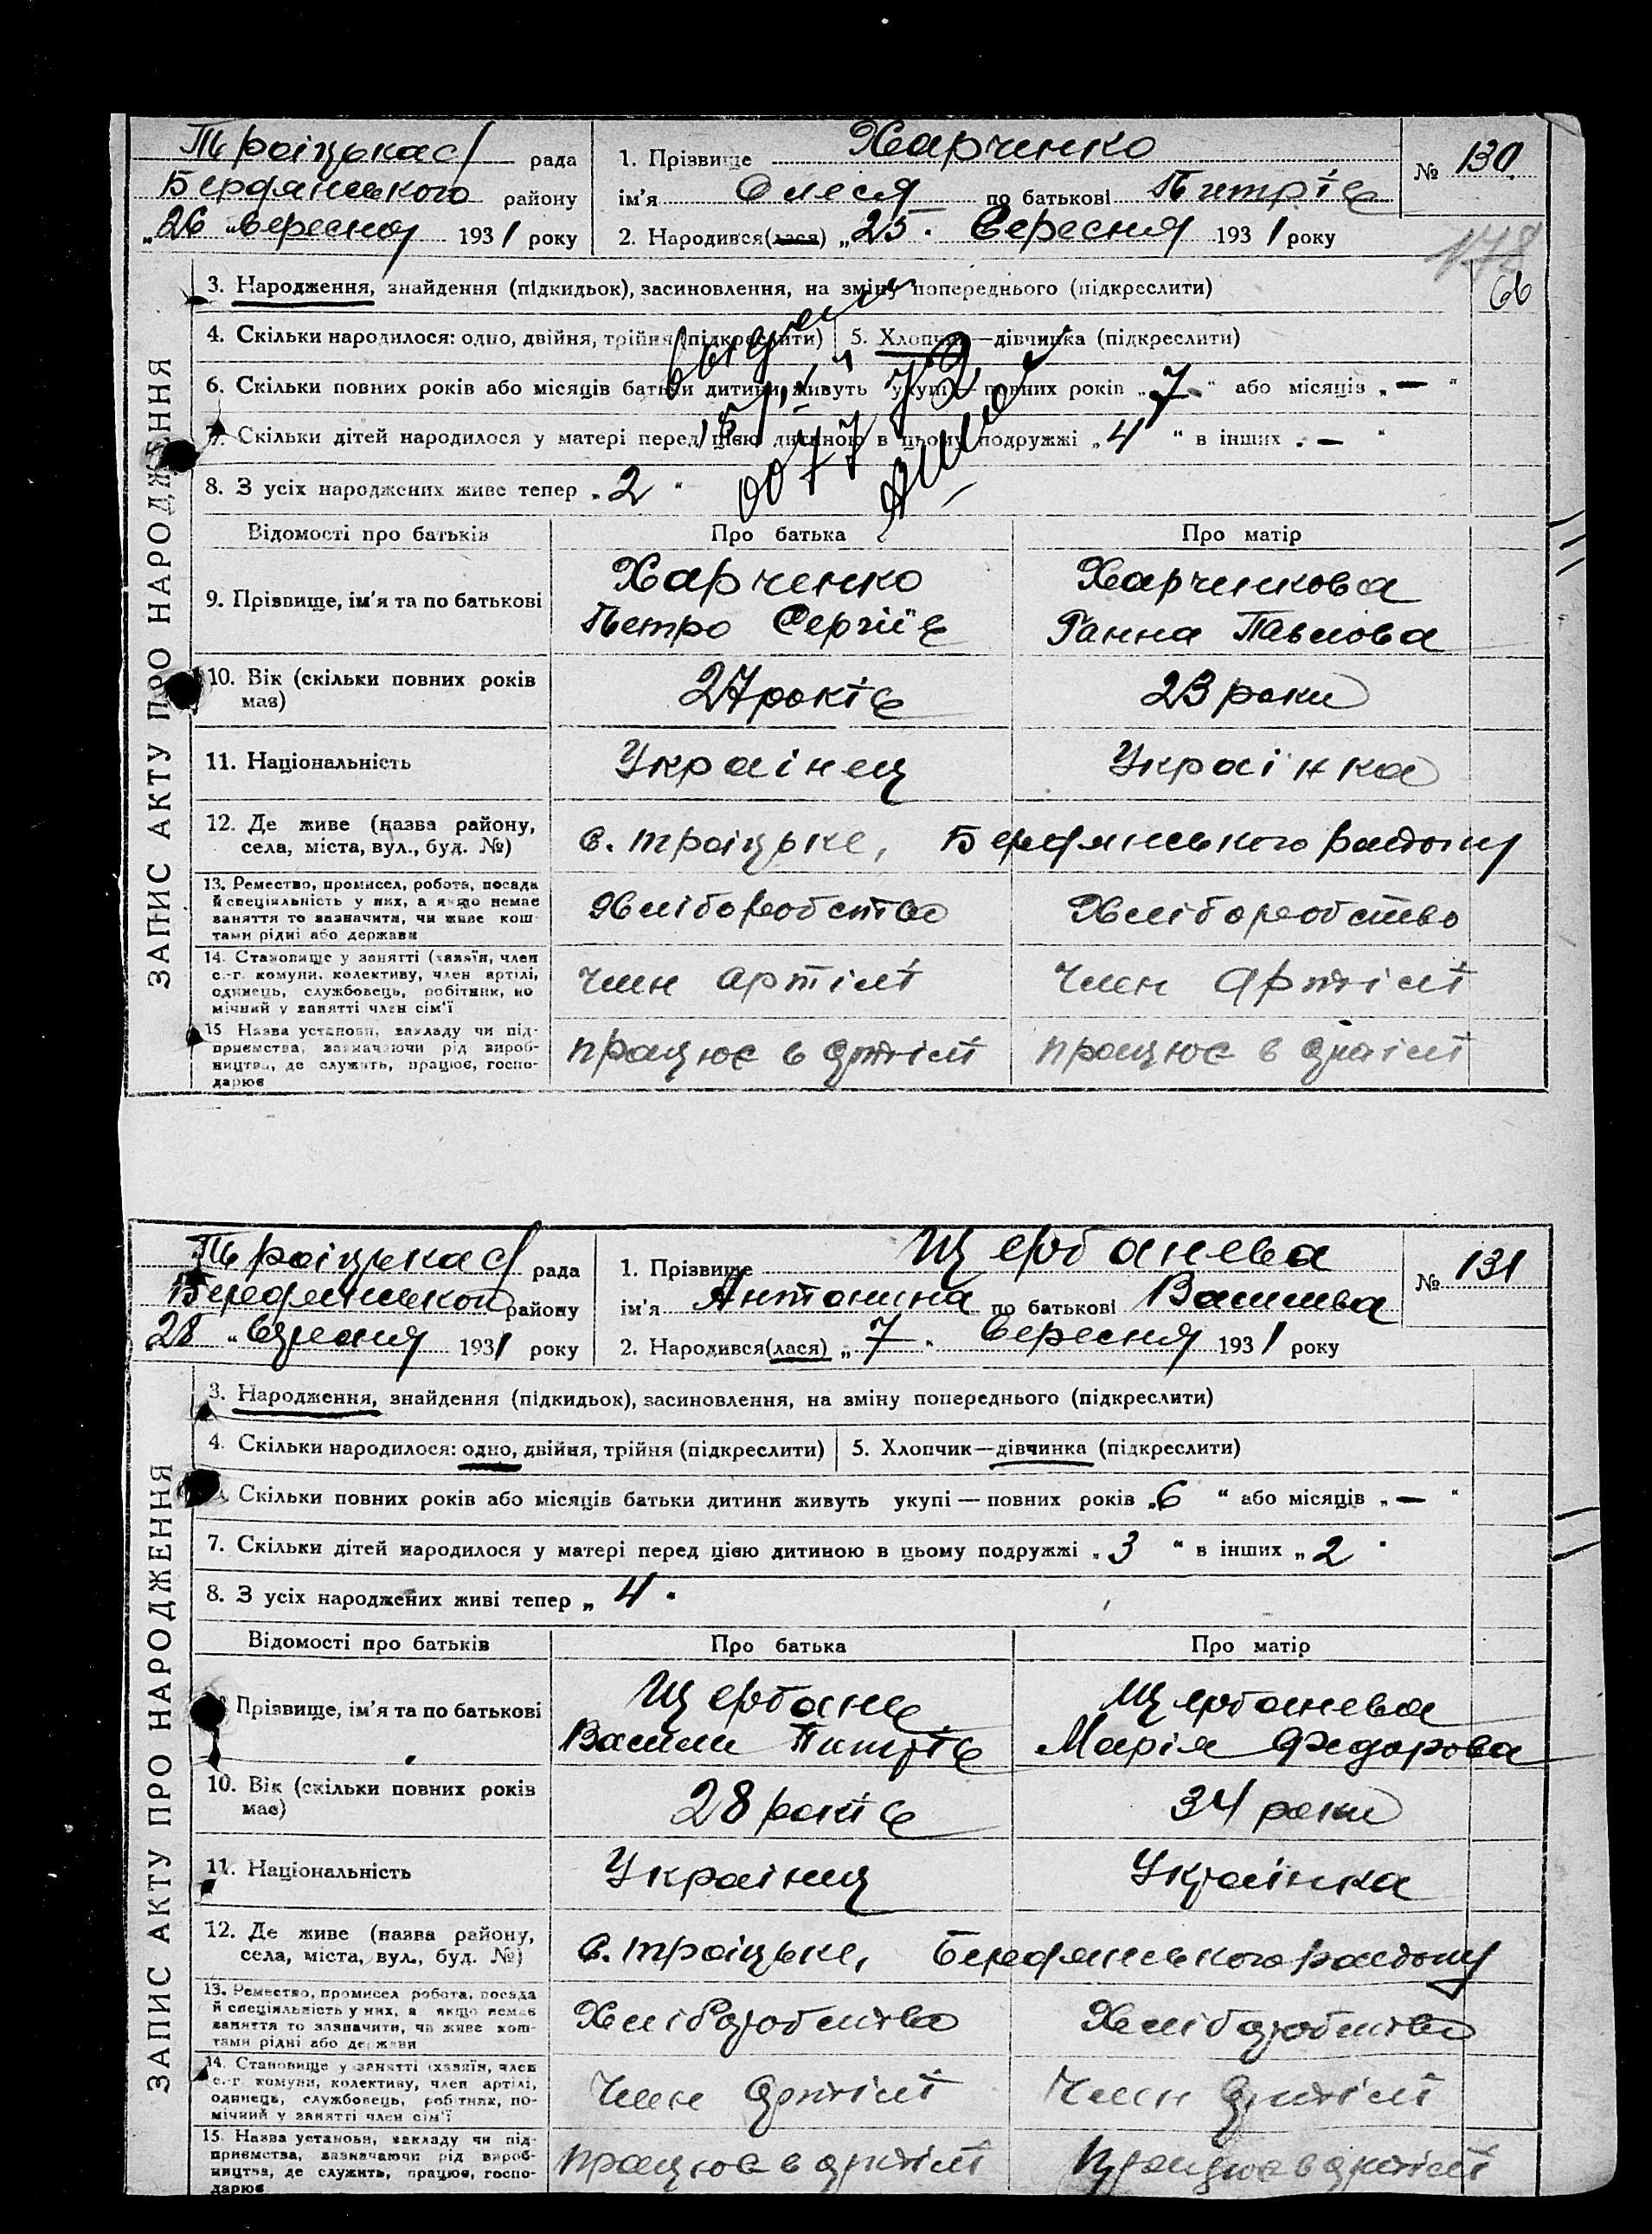 ЗАПИС АКТУ ПРО НАРОДЖЕННЯ
Троіцька с/ рада
Бердянського району
„26 „ вересня 1931 року
1. Прізвище Харченко
ім'я Олеся по батькові Питрів
2. Народився(лася) „25. Вересня 1931 року
№ 130.
178
66
3. Народження, знайдення (підкидьок), засиновлення, на зміну попереднього (підкреслити)
4. Скільки народилося: одно, двійня, трійня (підкреслити) 5. Хлопчик—дівчинка (підкреслити)
6. Скільки повних років або місяців батьки дитини живуть укупі — повних років „7" або місяців „—"
7. Скільки дітей народилося у матері перед цією дитиною в цьому подружжі „4" в інших „—"
8. З усіх народжених живе тепер „2"
Відомості про батьків Про батька Про матір
9. Прізвище, ім'я та по батькові
Харченко Харченкова
Петро Сергіїв Ганна Павлова
10. Вік (скільки повних років має) 27 років 23 роки
11. Національність Украінец Украінка
12. Де живе (назва району, села, міста, вул., буд. №)
с. Троіцьке, Бердянського району
13. Ремество, промисел, робота, посада
й спеціяльність у них, а якщо немає
заняття то зазначити, чи живе кош-
тами рідні або держави
Хліборобство Хліборобство
14. Становище у занятті (хазяїн, член
с.-г. комуни, колективу, член артілі,
одинець, службовець, робітник, по
мічний у занятті член сім'ї
член артілі член артілі
15 Назва установи, закладу чи під-
приємства, зазначаючи рід вироб-
ництва, де служить, працює, госпо-
дарює
працює в артілі працює в артілі
ЗАПИС АКТУ ПРО НАРОДЖЕННЯ
Троіцька с/ рада
Бердянськог району
28 „ вересня 1931 року
1. Прізвище Щербанева
ім'я Антонина по батькові Василива
2. Народився(лася) „7" вересня 1931 року
№ 131
3. Народження, знайдення (підкидьок), засиновлення, на зміну попереднього (підкреслити)
4. Скільки народилося: одно, двійня, трійня (підкреслити) 5. Хлопчик—дівчинка (підкреслити)
Скільки повних років або місяців батьки дитини живуть укупі — повних років „6" або місяців „—"
7. Скільки дітей народилося у матері перед цією дитиною в цьому подружжі „3" в інших „2"
8. З усіх народжених живі тепер „4"
Відомості про батьків Про батька Про матір
Прізвище, ім'я та по батькові
Щербанев Щербанева
Василь Питрів Марія Федорова
10. Вік (скільки повних років має) 28 років 34 роки
11. Національність Украінец Украінка
12. Де живе (назва району, села, міста, вул., буд. №)
с. Троіцьке, Бердянського району
13. Ремество, промисел робота, посада
й спеціяльність у них, а якщо немає
заняття то зазначити, чи живе кош-
тами рідні або держави
Хліборобство Хліборобство
14. Становище у занятті (хазяїн, член
с.-г. комуни, колективу, член артілі,
одинець, службовець, робітник, по-
мічний у занятті член сім'ї
Член артілі Член артілі
15. Назва установи, закладу чи під-
приємства, зазначаючи рід вироб-
ництва, де служить, працює, госпо-
дарює
працює в артілі працює в артілі